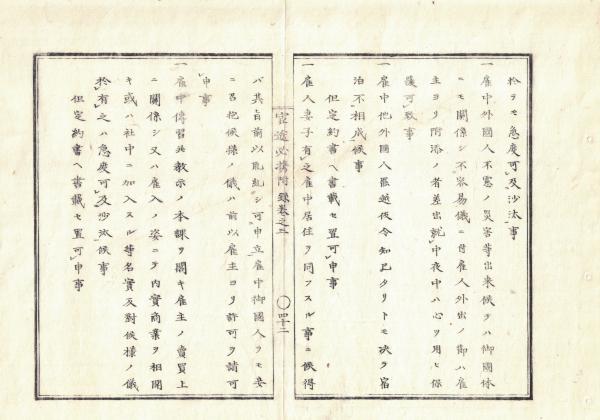 於テモ急度可及沙汰事
一雇中外國人不慮ノ災害等出来候テハ御國体
ニモ關係シ不容易儀ニ付雇人外出ノ節ハ雇
主ヨリ附添ノ者差出就中夜中ハ心ヲ用ヒ保
護可致事
一雇中他外國人罷越仮令知己タリトモ決テ宿
泊不相成候事
但定約書ヘ書載セ置可申事
一雇人妻子有之雇中居住ヲ同フスル事ニ候得
官途必携附録巻之二
〇四十二
バ其旨前以能糺シ可申立雇中御國人ヲモ妾
ニ召抱候様ノ儀ハ前以雇主ヨリ許可ヲ請可
申事
一雇中傳習并教示ノ本課ヲ闕キ雇主ノ賣買上
ニ關係シ又ハ雇入ノ姿ニテ内實商業ヲ相開
キ或ハ社中ニ加入スル等名實反對候様ノ儀
於有之ハ急度可及沙汰候事
但定約書ヘ書載セ置可申事